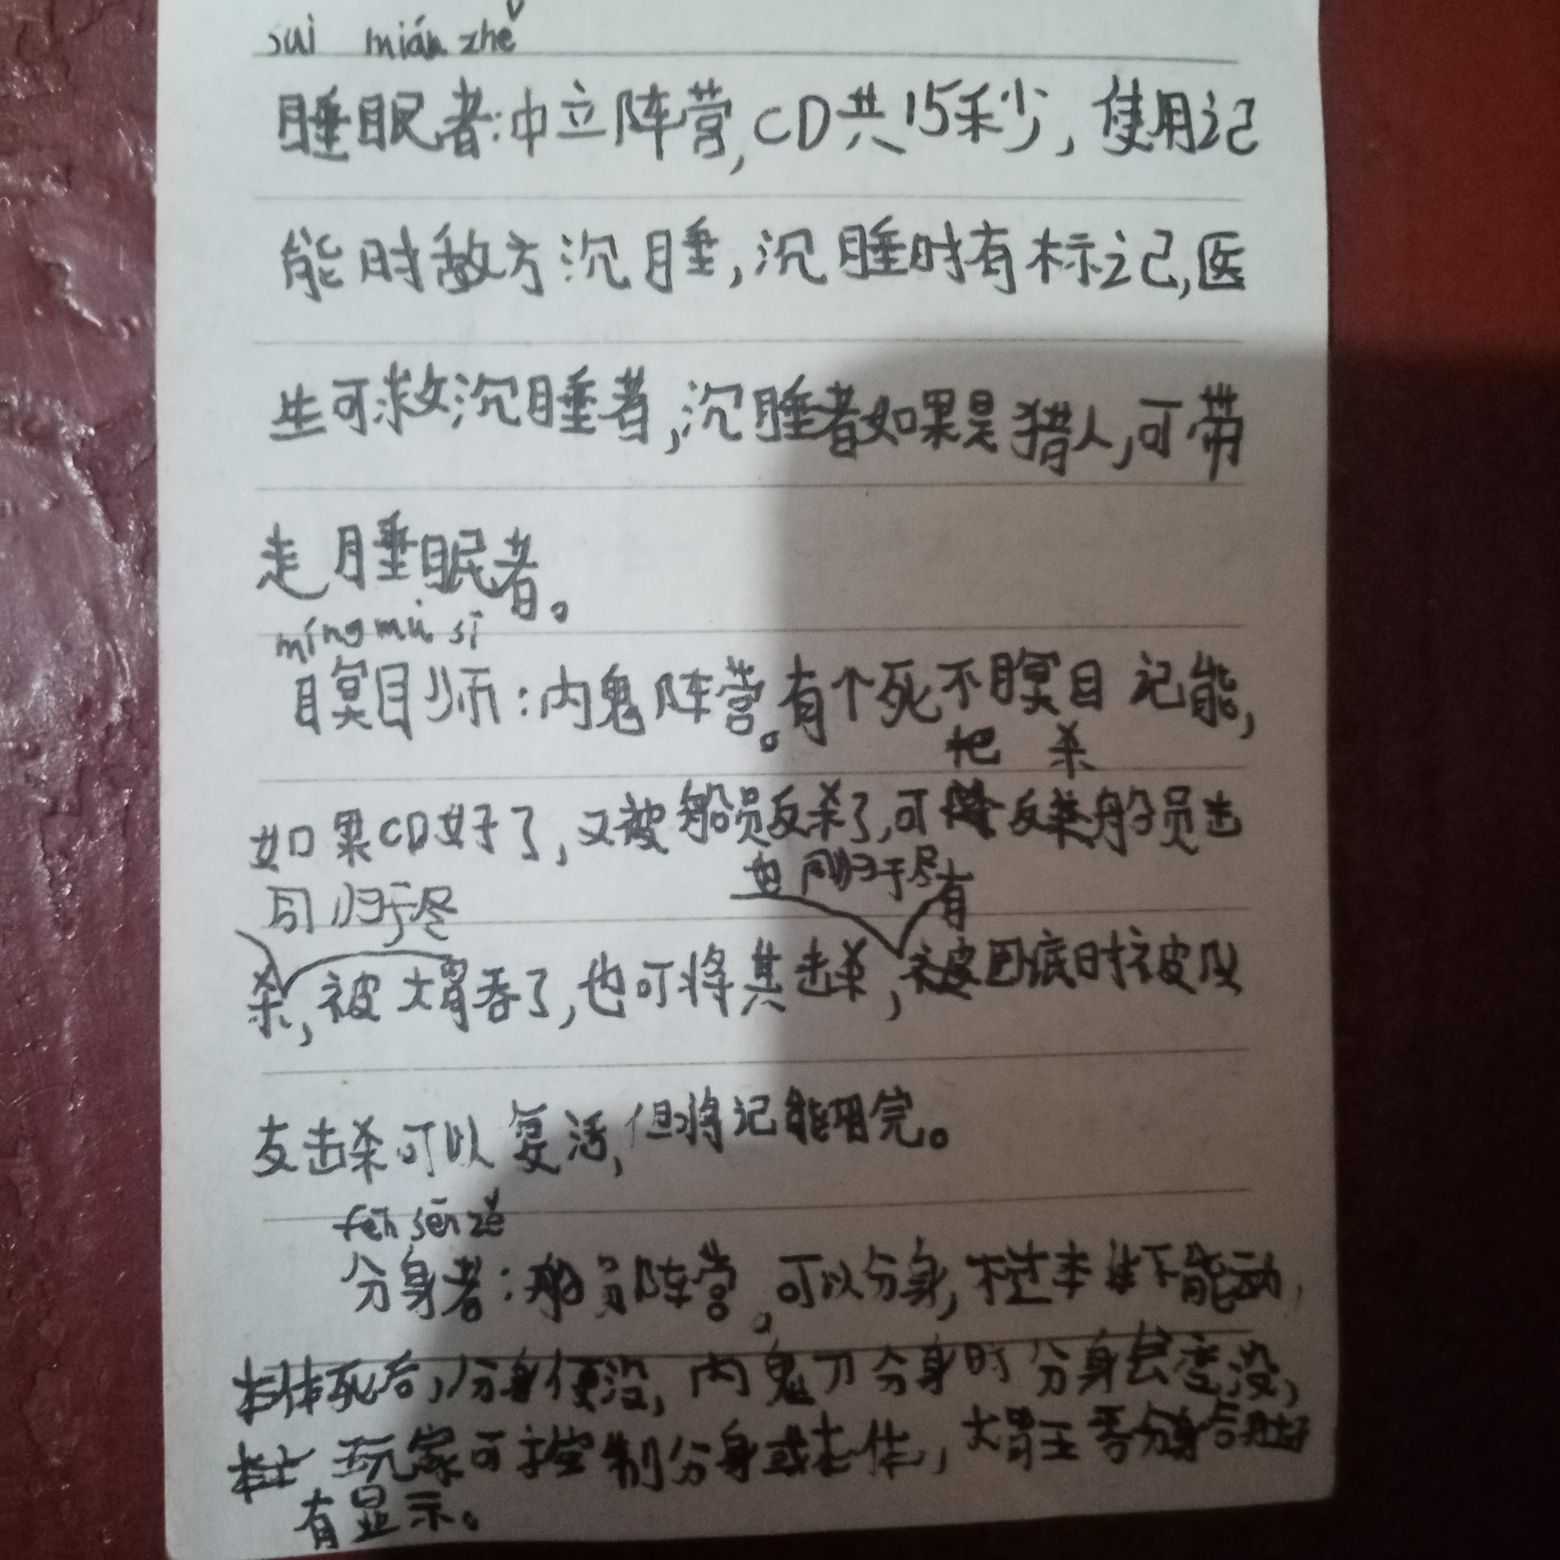 suì mián zhě
睡眠者:中立阵营,CD共15秒,使用记
能时敌方沉睡,沉睡时有标记,医
生可救沉睡者,沉睡者如果是猎人,可带
走睡眠者。
míng mù sī
瞑目师:内鬼阵营。有个死不瞑目记能,
把 杀
如果CD好了,又被船员反杀了,可 反杀船员击
同归于尽
同归于尽 有
杀,被大胃吞了,也可将其击杀,被 底时被队
友击杀可以复活,但将记能用完。
fēn sēn zě
分身者:船员阵营,可以分身,不过本体不能动,
本体死后,分身便没,内鬼刀分身时分身会变没,
玩家可控制分身或本体,大胃王吞分身后
有显示。